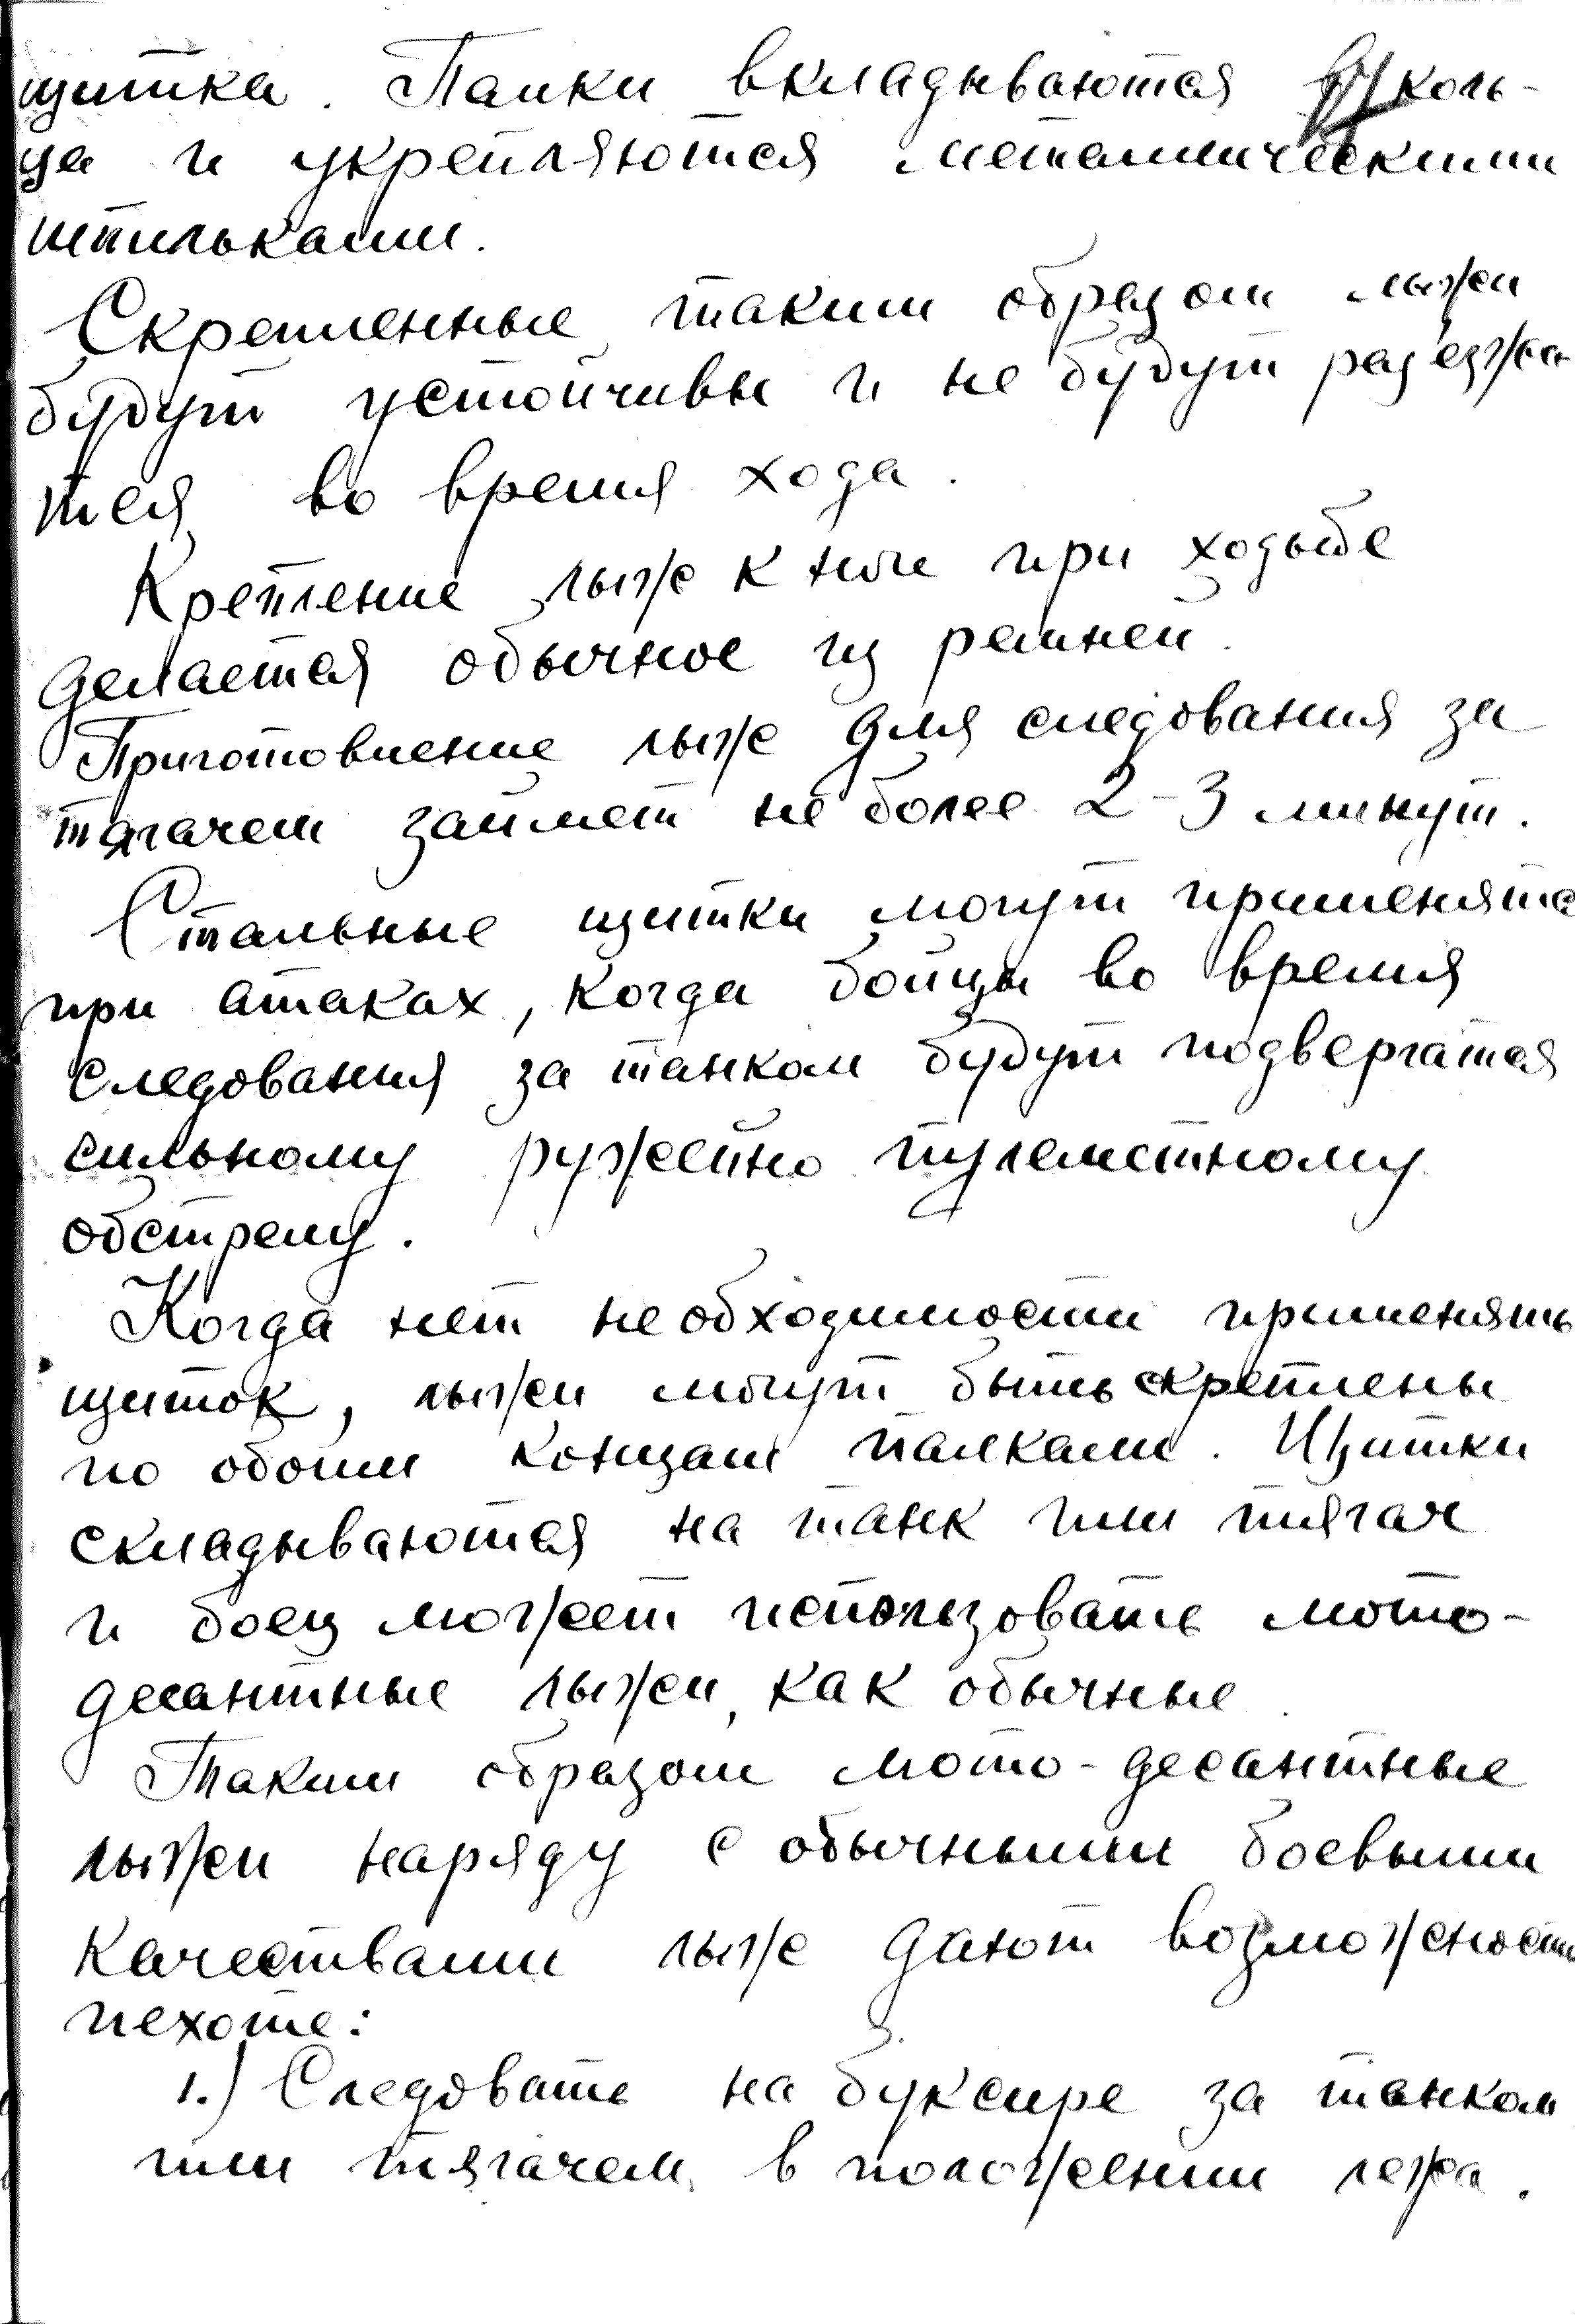 щитка. Палки вкладываются в коль-
ца и укрепляются металлическими
шпильками.
Скрепленные таким образом лыжи
будут устойчивы и не будут разъезжа
тся во время хода.
Крепление лыж к ноге при ходьбе
делается обычное из ремней.
Приготовление лыж для следования за
тягачем займет не более 2-3 минут.
Стальные щитки могут применятся
при атаках, когда бойцы во время
следования за танком будут подвергатся
сильному ружейно пулеметному
обстрелу.
Когда нет необходимости применять
щиток, лыжи могут быть скреплены
по обоим концам палками. Щитки
складываются на танк или тягач
и боец может использовать мото-
десантные лыжи, как обычные.
Таким образом мото-десантные
лыжи наряду с обычными боевыми
качествами лыж дают возможность
пехоте:
1.) Следовать на буксире за танком
или тягачем в положении лежа.